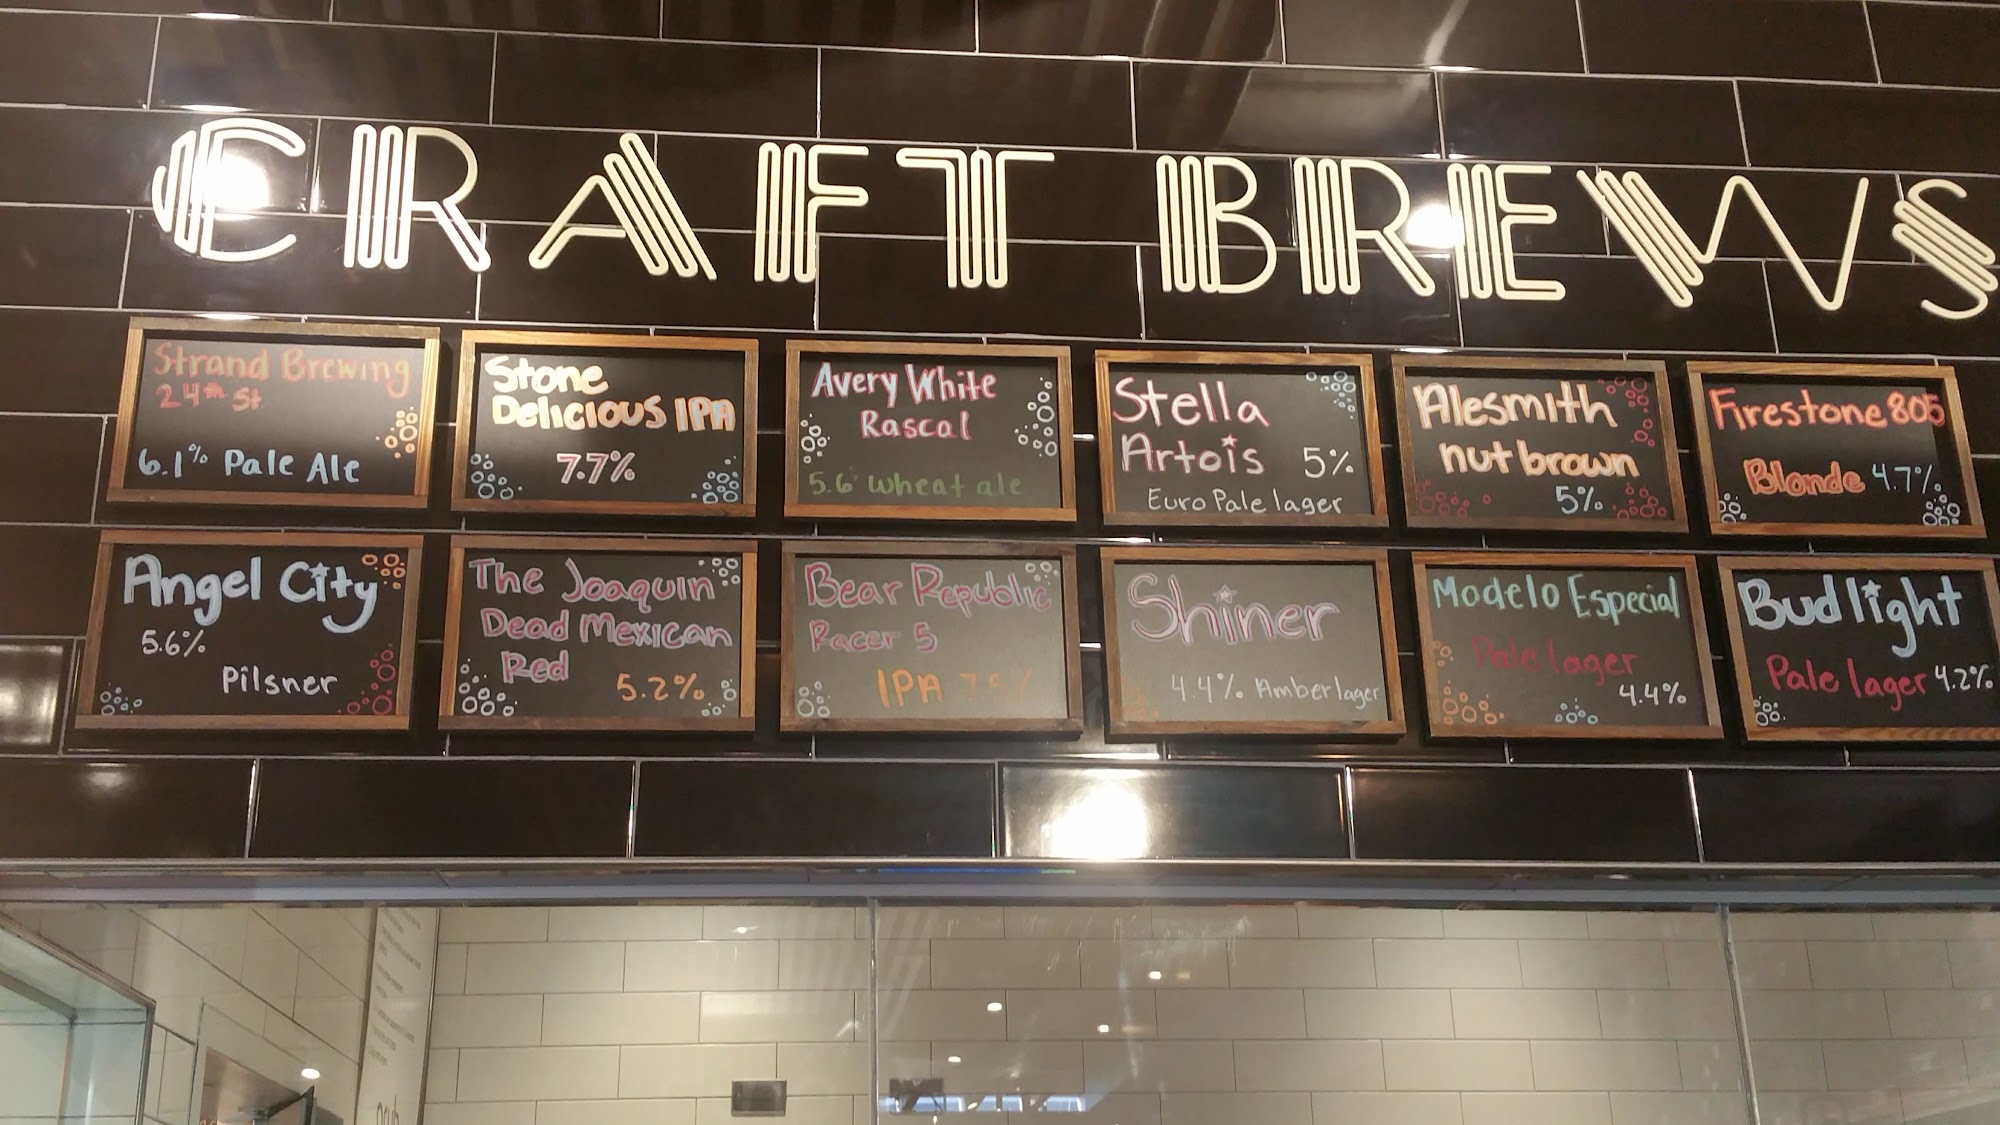 CRAFT BREWS
Strand Brewing
24th St
6.1% Pale Ale
Stone
Delicious IPA
7.7%
Avery White
Rascal
5.6 wheat ale
Stella
Artois 5%
Euro Pale lager
Alesmith
nut brown
5%
Firestone 805
Blonde 4.7%
Angel City
5.6%
Pilsner
The Joaquin
Dead Mexican
Red
5.2%
Bear Republic
Racer 5
IPA 7.5%
Shiner
4.4% Amber lager
Modelo Especial
Pale lager
4.4%
Bud light
Pale lager 4.2%